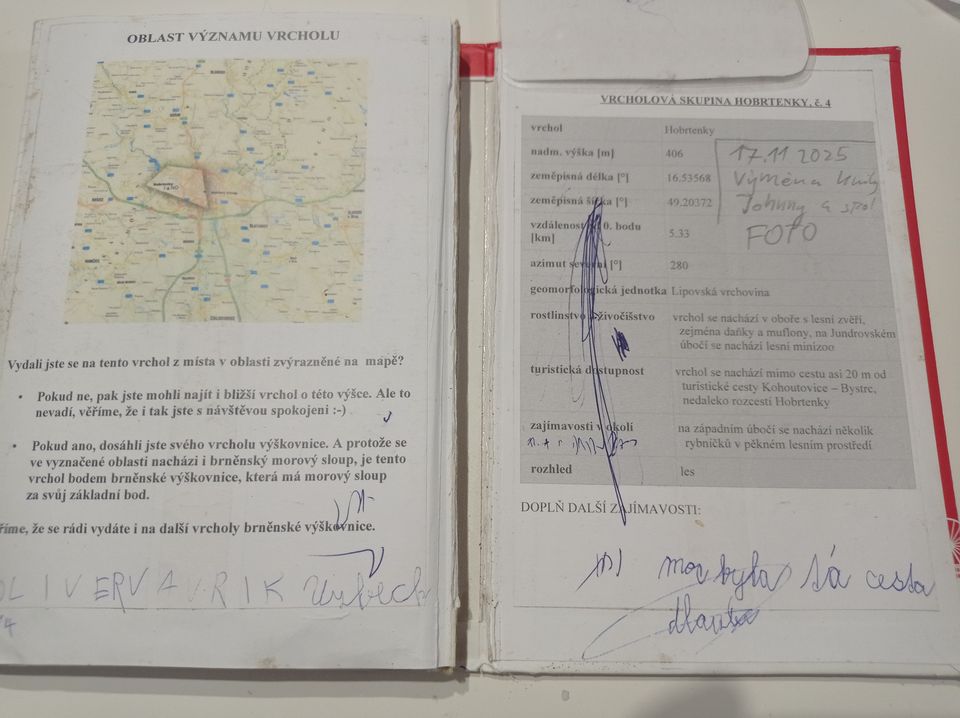 OBLAST VÝZNAMU VRCHOLU
Vydali jste se na tento vrchol z místa v oblasti zvýrazněné na mapě?
• Pokud ne, pak jste mohli najít i bližší vrchol o této výšce. Ale to
nevadí, věříme, že i tak jste s návštěvou spokojeni :-)
• Pokud ano, dosáhli jste svého vrcholu výškovnice. A protože se
ve vyznačené oblasti nachází i brněnský morový sloup, je tento
vrchol bodem brněnské výškovnice, která má morový sloup
za svůj základní bod.
říme, že se rádi vydáte i na další vrcholy brněnské výškovnice.
OLIVER VAVRIK
VRCHOLOVÁ SKUPINA HOBRTENKY, č. 4
vrchol Hobrtenky
nadm. výška [m] 406
zeměpisná délka [°] 16.53568
zeměpisná šířka [°] 49.20372
vzdálenost 0. bodu
[km] 5.33
azimut severní [°] 280
geomorfologická jednotka Lipovská vrchovina
rostlinstvo živočišstvo vrchol se nachází v oboře s lesní zvěří,
zejména daňky a muflony, na Jundrovském
úbočí se nachází lesní minizoo
turistická dostupnost vrchol se nachází mimo cestu asi 20 m od
turistické cesty Kohoutovice – Bystrc,
nedaleko rozcestí Hobrtenky
zajímavosti v okolí na západním úbočí se nachází několik
rybníčků v pěkném lesním prostředí
rozhled les
17.11 2025
Výměna knihy
Johnny a spol
FOTO
DOPLŇ DALŠÍ ZAJÍMAVOSTI:
moc byla tá cesta
dlouha